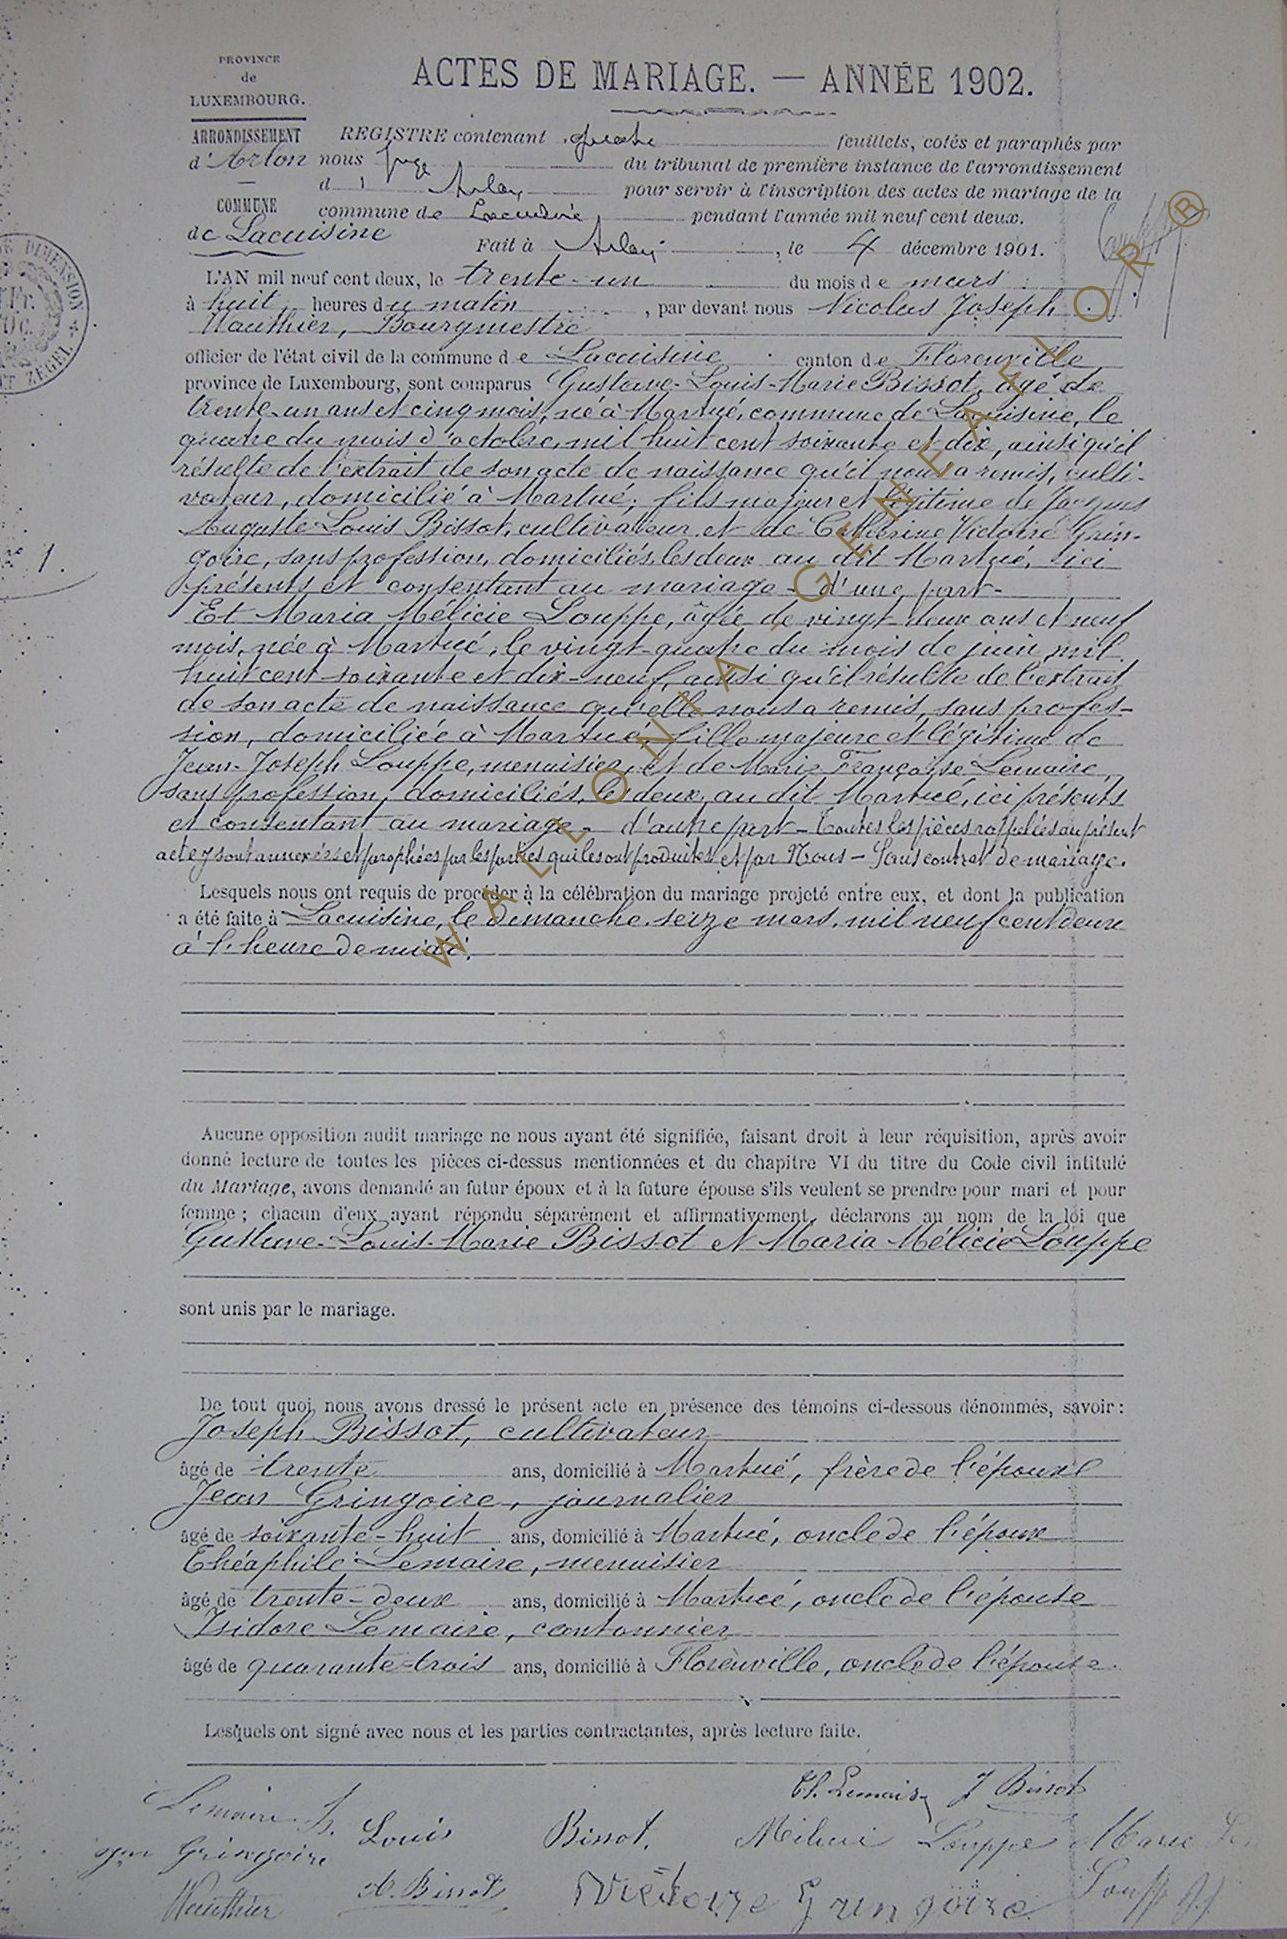 PROVINCE
de
LUXEMBOURG.
ACTES DE MARIAGE. — ANNÉE 1902.
ARRONDISSEMENT
d'Arlon
COMMUNE
de Lacuisine
REGISTRE contenant quatre feuillets, cotés et paraphés par
nous juge du tribunal de première instance de l'arrondissement
d' Arlon pour servir à l'inscription des actes de mariage de la
commune de Lacuisine pendant l'année mil neuf cent deux.
Fait à Arlon, le 4 décembre 1901.
L'AN mil neuf cent deux, le trente-un du mois de mars
à huit heures du matin, par devant nous Nicolas Joseph
Wauthier, Bourgmestre
officier de l'état civil de la commune de Lacuisine canton de Florenville
province de Luxembourg, sont comparus Gustave-Louis-Marie Bissot, âgé de
trente-un ans et cinq mois, né à Martué, commune de Lacuisine, le
quatre du mois d'octobre, mil huit cent soixante et dix, ainsi qu'il
résulte de l'extrait de son acte de naissance qu'il nous a remis, culti-
vateur, domicilié à Martué, fils majeur et légitime de Jacques
Auguste Louis Bissot, cultivateur et de Catherine Victoire Grin-
goire, sans profession, domiciliés, les deux au dit Martué, ici
présents et consentant au mariage - d'une part-
Et Maria Mélicie Louppe, âgée de vingt-deux ans et neuf
mois, née à Martué, le vingt-quatre du mois de juin mil
huit cent soixante et dix-neuf, ainsi qu'il résulte de l'extrait
de son acte de naissance qu'elle nous a remis, sans profes-
sion, domiciliée à Martué, fille majeure et légitime de
Jean-Joseph Louppe, menuisier, et de Marie Françoise Lemaire,
sans profession, domiciliés, les deux, au dit Martué, ici présents
et consentant au mariage - d'autre part - Toutes les pièces rappelées au présent
acte y sont annexées et paraphées par les parties qui les ont produites et par Nous - Sans contrat de mariage.
N° 1.
Lesquels nous ont requis de procéder à la célébration du mariage projeté entre eux, et dont la publication
a été faite à Lacuisine, le dimanche seize mars, mil neuf cent deux
à l'heure de midi.
Aucune opposition audit mariage ne nous ayant été signifiée, faisant droit à leur réquisition, après avoir
donné lecture de toutes les pièces ci-dessus mentionnées et du chapitre VI du titre du Code civil intitulé
du Mariage, avons demandé au futur époux et à la future épouse s'ils veulent se prendre pour mari et pour
femme ; chacun d'eux ayant répondu séparément et affirmativement, déclarons au nom de la loi que
Gustave-Louis-Marie Bissot et Maria Mélicie Louppe
sont unis par le mariage.
De tout quoi, nous avons dressé le présent acte en présence des témoins ci-dessous dénommés, savoir :
Joseph Bissot, cultivateur
âgé de trente ans, domicilié à Martué, frère de l'époux
Jean Gringoire, journalier
âgé de soixante-huit ans, domicilié à Martué, oncle de l'époux
Théophile Lemaire, menuisier
âgé de trente-deux ans, domicilié à Martué, oncle de l'épouse
Isidore Lemaire, cantonnier
âgé de quarante-trois ans, domicilié à Florenville, oncle de l'épouse.
Lesquels ont signé avec nous et les parties contractantes, après lecture faite.
Th. Lemaire J Bissot
Lemaire Is. Louis Bissot. Mélicie Louppe Marie
Gringoire
Wauthier A. Bissot Victoire Gringoire Louppe J.J
WALLONIA-GENEALOR®